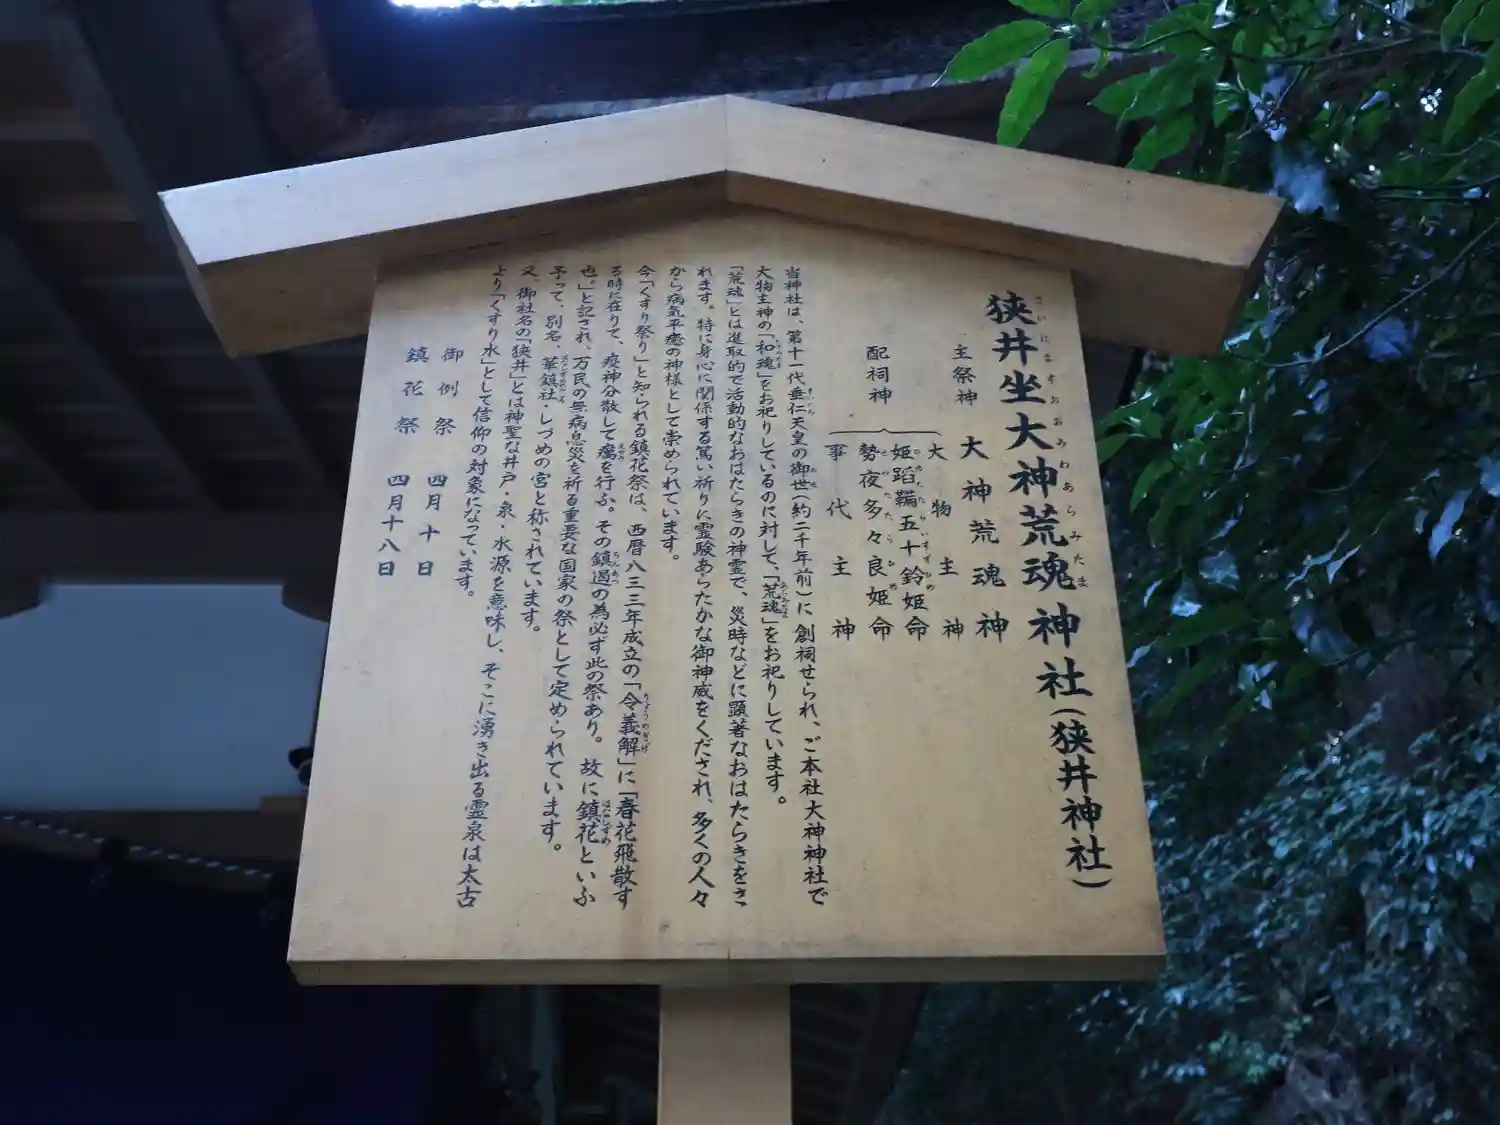 狭井坐大神荒魂神社(狭井神社)
さいにますおおみわあらみたま
主祭神 大神荒魂神
配祠神 大物主神
姫蹈鞴五十鈴姫命
ひめたたらいすずひめ
勢夜多々良姫命
せやたたらひめ
事代主神
当神社は、第十一代垂仁天皇の御世(約二千年前)に創祠せられ、ご本社大神神社で
大物主神の「和魂」をお祀りしているのに対して、「荒魂」をお祀りしています。
「荒魂」とは進取的で活動的なおはたらきの神霊で、災時などに顕著なおはたらきをさ
れます。特に身心に関係する篤い祈りに霊験あらたかな御神威をくだされ、多くの人々
から病気平癒の神様として崇められています。
今「くすり祭り」と知られる鎮花祭は、西暦八三三年成立の「令義解」に「春花飛散す
る時に在りて、疫神分散して癘を行ふ。その鎮遏の為必ず此の祭あり。故に鎮花といふ
也。」と記され、万民の無病息災を祈る重要な国家の祭として定められています。
予って、別名、華鎮社・しづめの宮と称されています。
又、御社名の「狭井」とは神聖な井戸・泉・水源を意味し、そこに湧き出る霊泉は太古
より「くすり水」として信仰の対象になっています。
御例祭 四月十日
鎮花祭 四月十八日